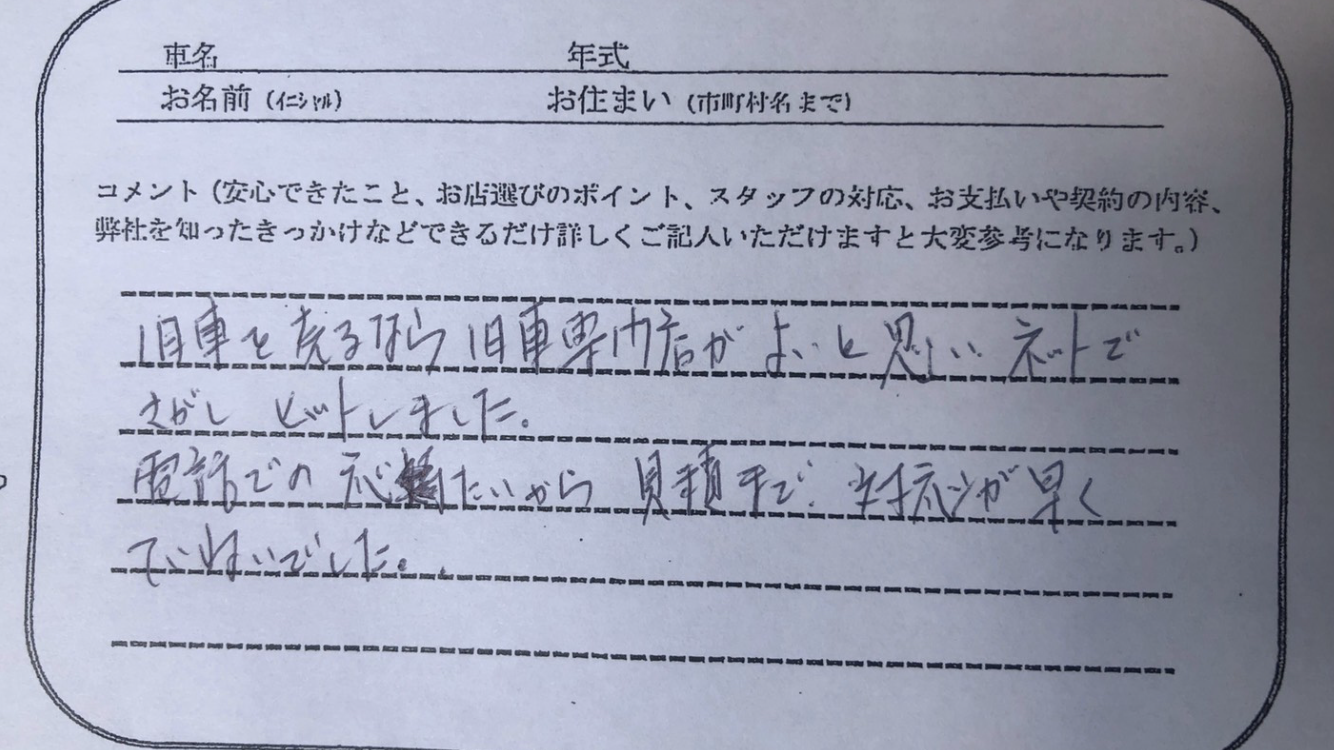 車名 年式
お名前 (イニシャル) お住まい (市町村名まで)
コメント (安心できたこと、お店選びのポイント、スタッフの対応、お支払いや契約の内容、
弊社を知ったきっかけなどできるだけ詳しくご記入いただけますと大変参考になります。)
旧車を売るなら旧車専門店がよいと思い ネットで
さがし ヒットしました。
電話での応たいから 見積まで 対応が早く
ていねいでした。